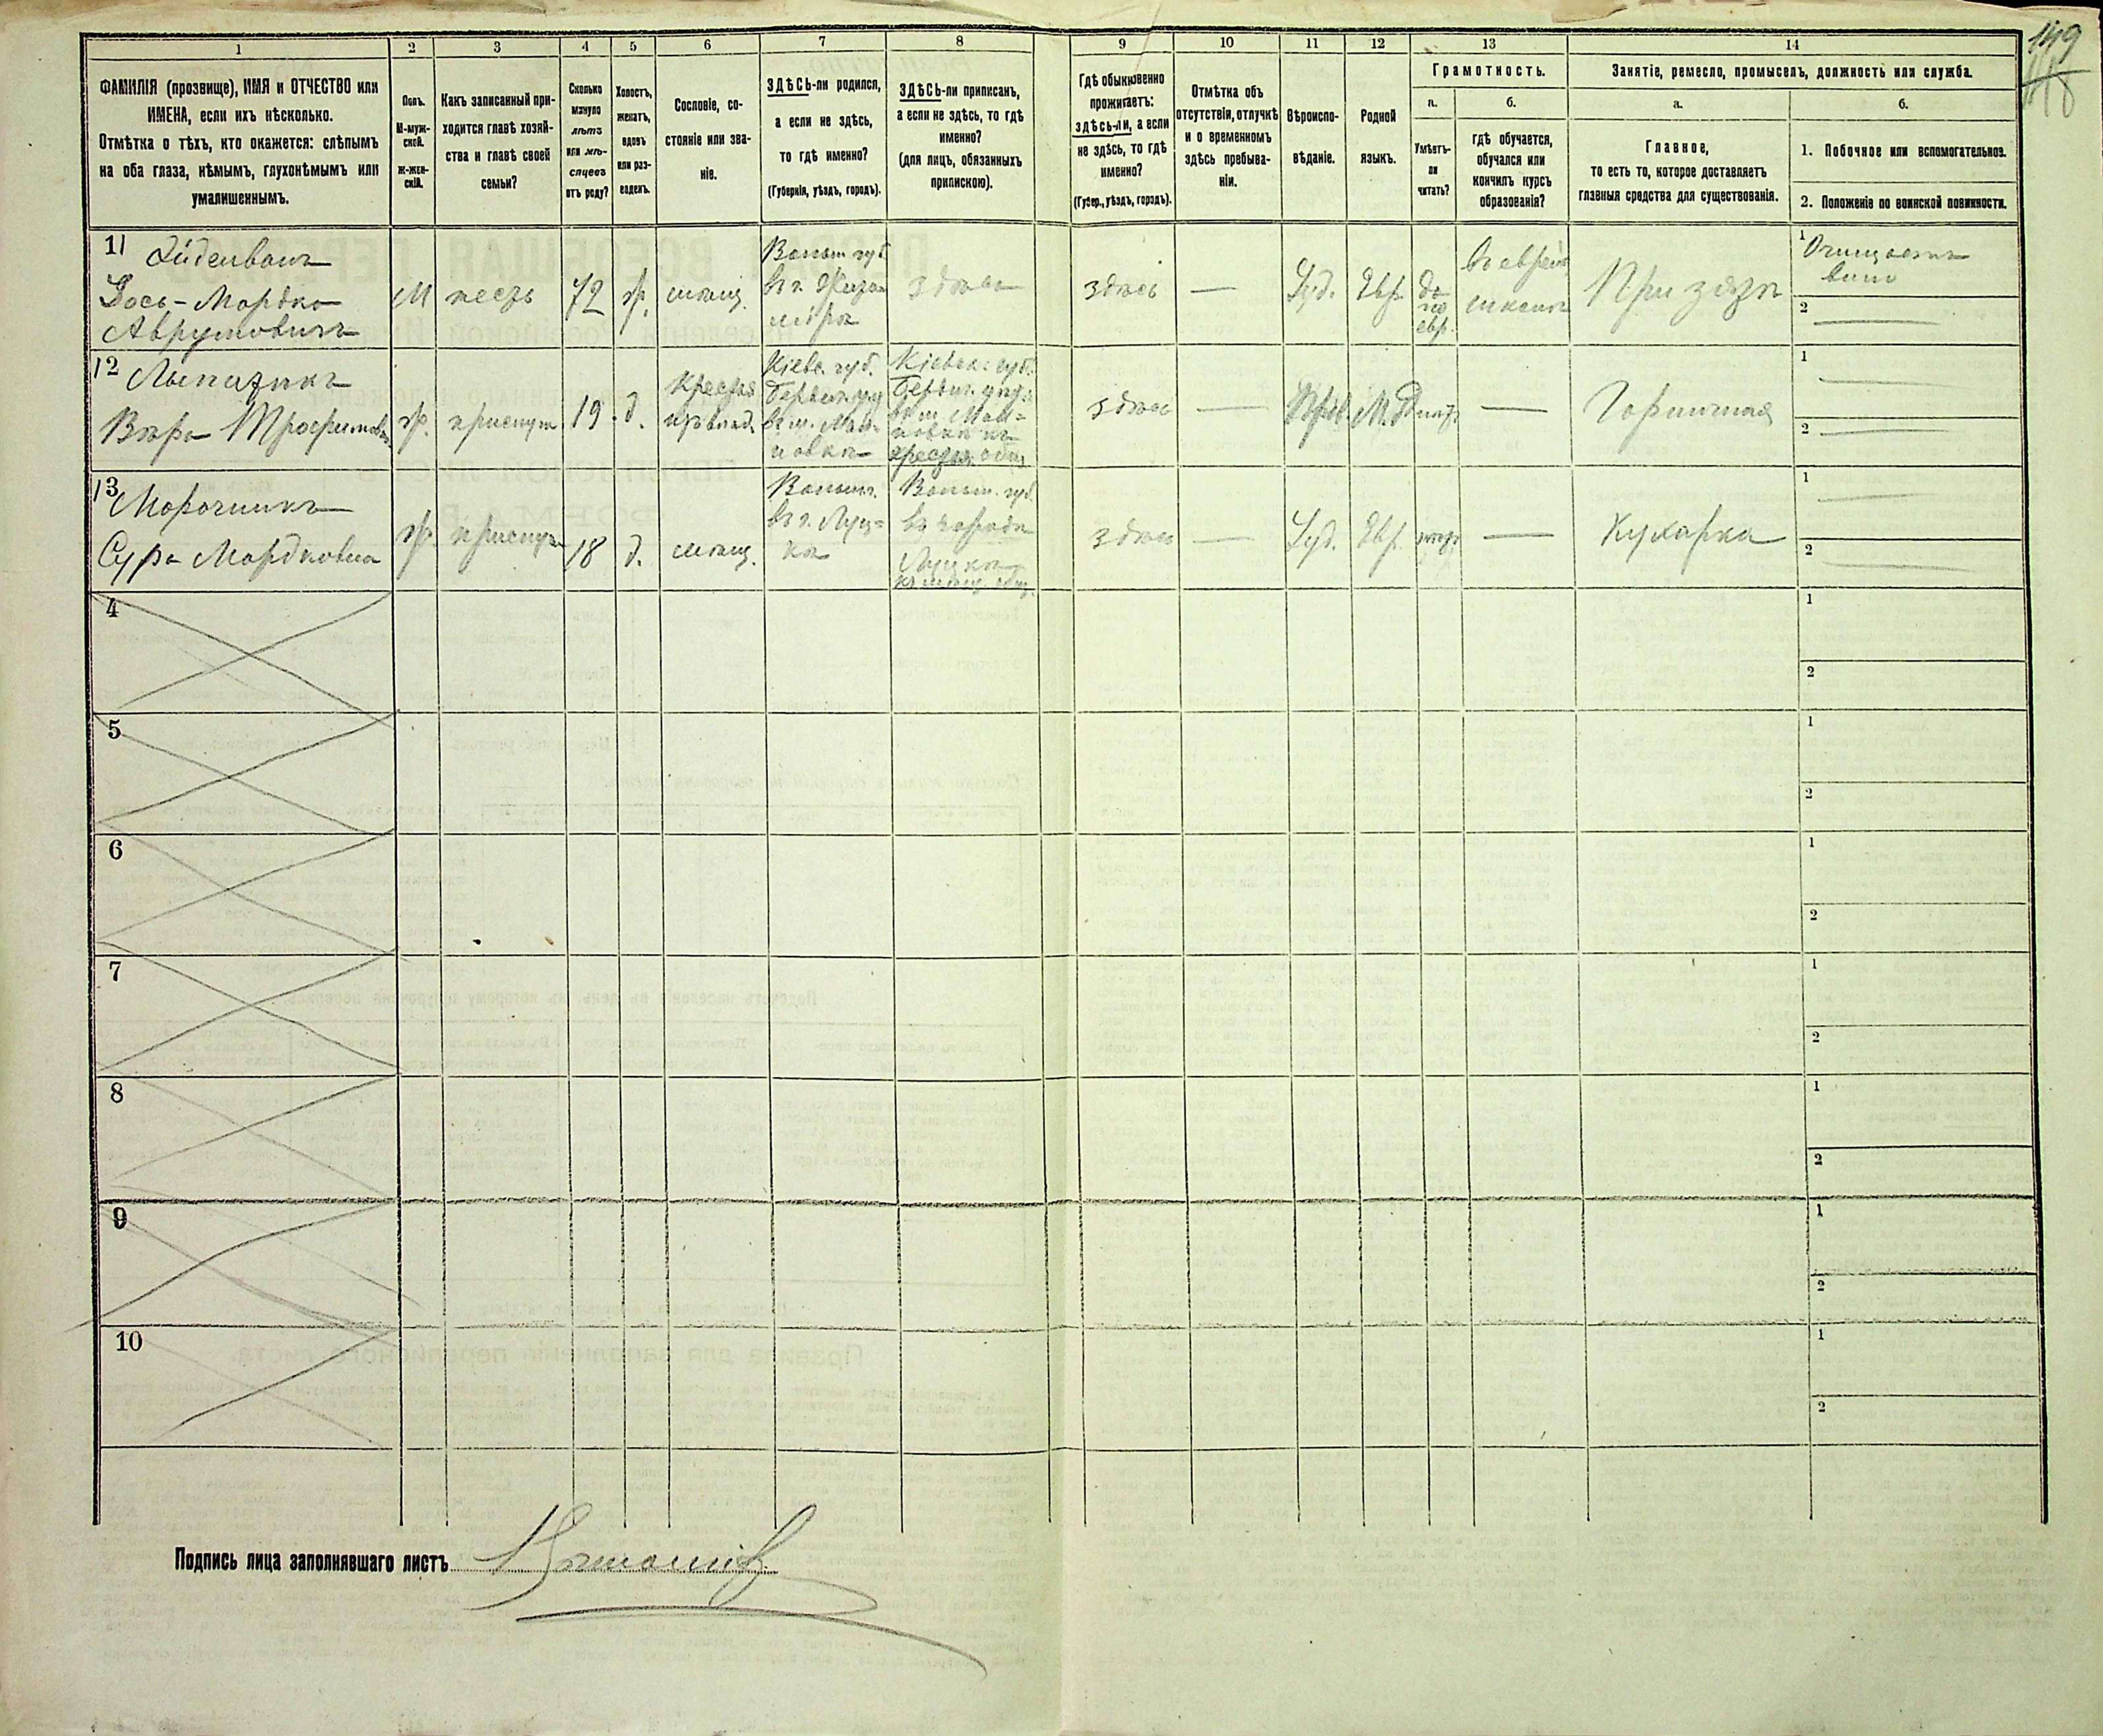 149
1
2
3
4
5
6
7
8
9
10
11
12
13
14
ФАМИЛІЯ (прозвище), ИМЯ и ОТЧЕСТВО или
ИМЕНА, если ихъ нѣсколько.
Отмѣтка о тѣхъ, кто окажется: слѣпымъ
на оба глаза, нѣмымъ, глухонѣмымъ или
умалишеннымъ.
Полъ.
М-муж-
ской.
Ж-жен-
скій.
Какъ записанный при-
ходится главѣ хозяй-
ства и главѣ своей
семьи?
Сколько
минуло
лѣтъ
или мѣ-
сяцевъ
отъ роду?
Холостъ,
женатъ,
вдовъ
или раз-
веденъ.
Сословіе, со-
стояніе или зва-
ніе.
ЗДѢСЬ-ли родился,
а если не здѣсь,
то гдѣ именно?
(Губернія, уѣздъ, городъ).
ЗДѢСЬ-ли приписанъ,
а если не здѣсь, то гдѣ
именно?
(для лицъ, обязанныхъ
припискою).
Гдѣ обыкновенно
проживаетъ:
здѣсь-ли, а если
не здѣсь, то гдѣ
именно?
(Губер., уѣздъ, городъ).
Отмѣтка объ
отсутствіи, отлучкѣ
и о временномъ
здѣсь пребыва-
ніи.
Вѣроиспо-
вѣданіе.
Родной
языкъ.
Грамотность.
а.
Умѣетъ-
ли
читать?
б.
гдѣ обучается,
обучался или
кончилъ курсъ
образованія?
Занятіе, ремесло, промыселъ, должность или служба.
а.
Главное,
то есть то, которое доставляетъ
главныя средства для существованія.
б.
1. Побочное или вспомогательное.
2. Положеніе по воинской повинности.
11
Іось-Мордко
Аврумовичъ
М
тесть
72
ж.
мѣщ.
Волын. губ.
въ г. Жито-
мірѣ
здѣсь
здѣсь
—
Іуд.
Евр.
да
по
евр.
въ еврейс.
школѣ
При зятѣ
1
вино
2
12
Вѣра Трофимовна
ж.
прислуга
19
д.
Кресть.
Кіевс. губ.
Кіевск. губ.
здѣсь
—
Прав.
М.Р.
нѣтъ
—
Горничная
1
2
13
Сура Мордковна
ж.
прислуга
18
д.
мѣщ.
Волын.
въ г. Луц-
кѣ
Волын. губ.
въ городѣ
Луцкѣ
къ мѣщ. общ.
здѣсь
—
Іуд.
Евр.
нѣтъ
—
Кухарка
1
2
4
1
2
5
1
2
6
1
2
7
1
2
8
1
2
9
1
2
10
1
2
Подпись лица заполнявшаго листъ